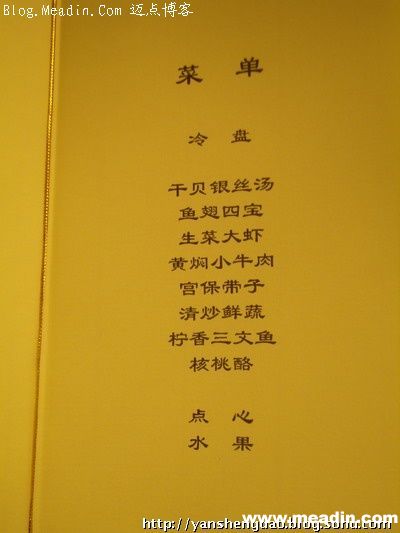 Blog.Meadin.Com 迈点博客
菜 单
冷 盘
干贝银丝汤
鱼翅四宝
生菜大虾
黄焖小牛肉
宫保带子
清炒鲜蔬
柠香三文鱼
核桃酪
点 心
水 果
www.meadin.com
http://yanshengdao.blog.sohu.com